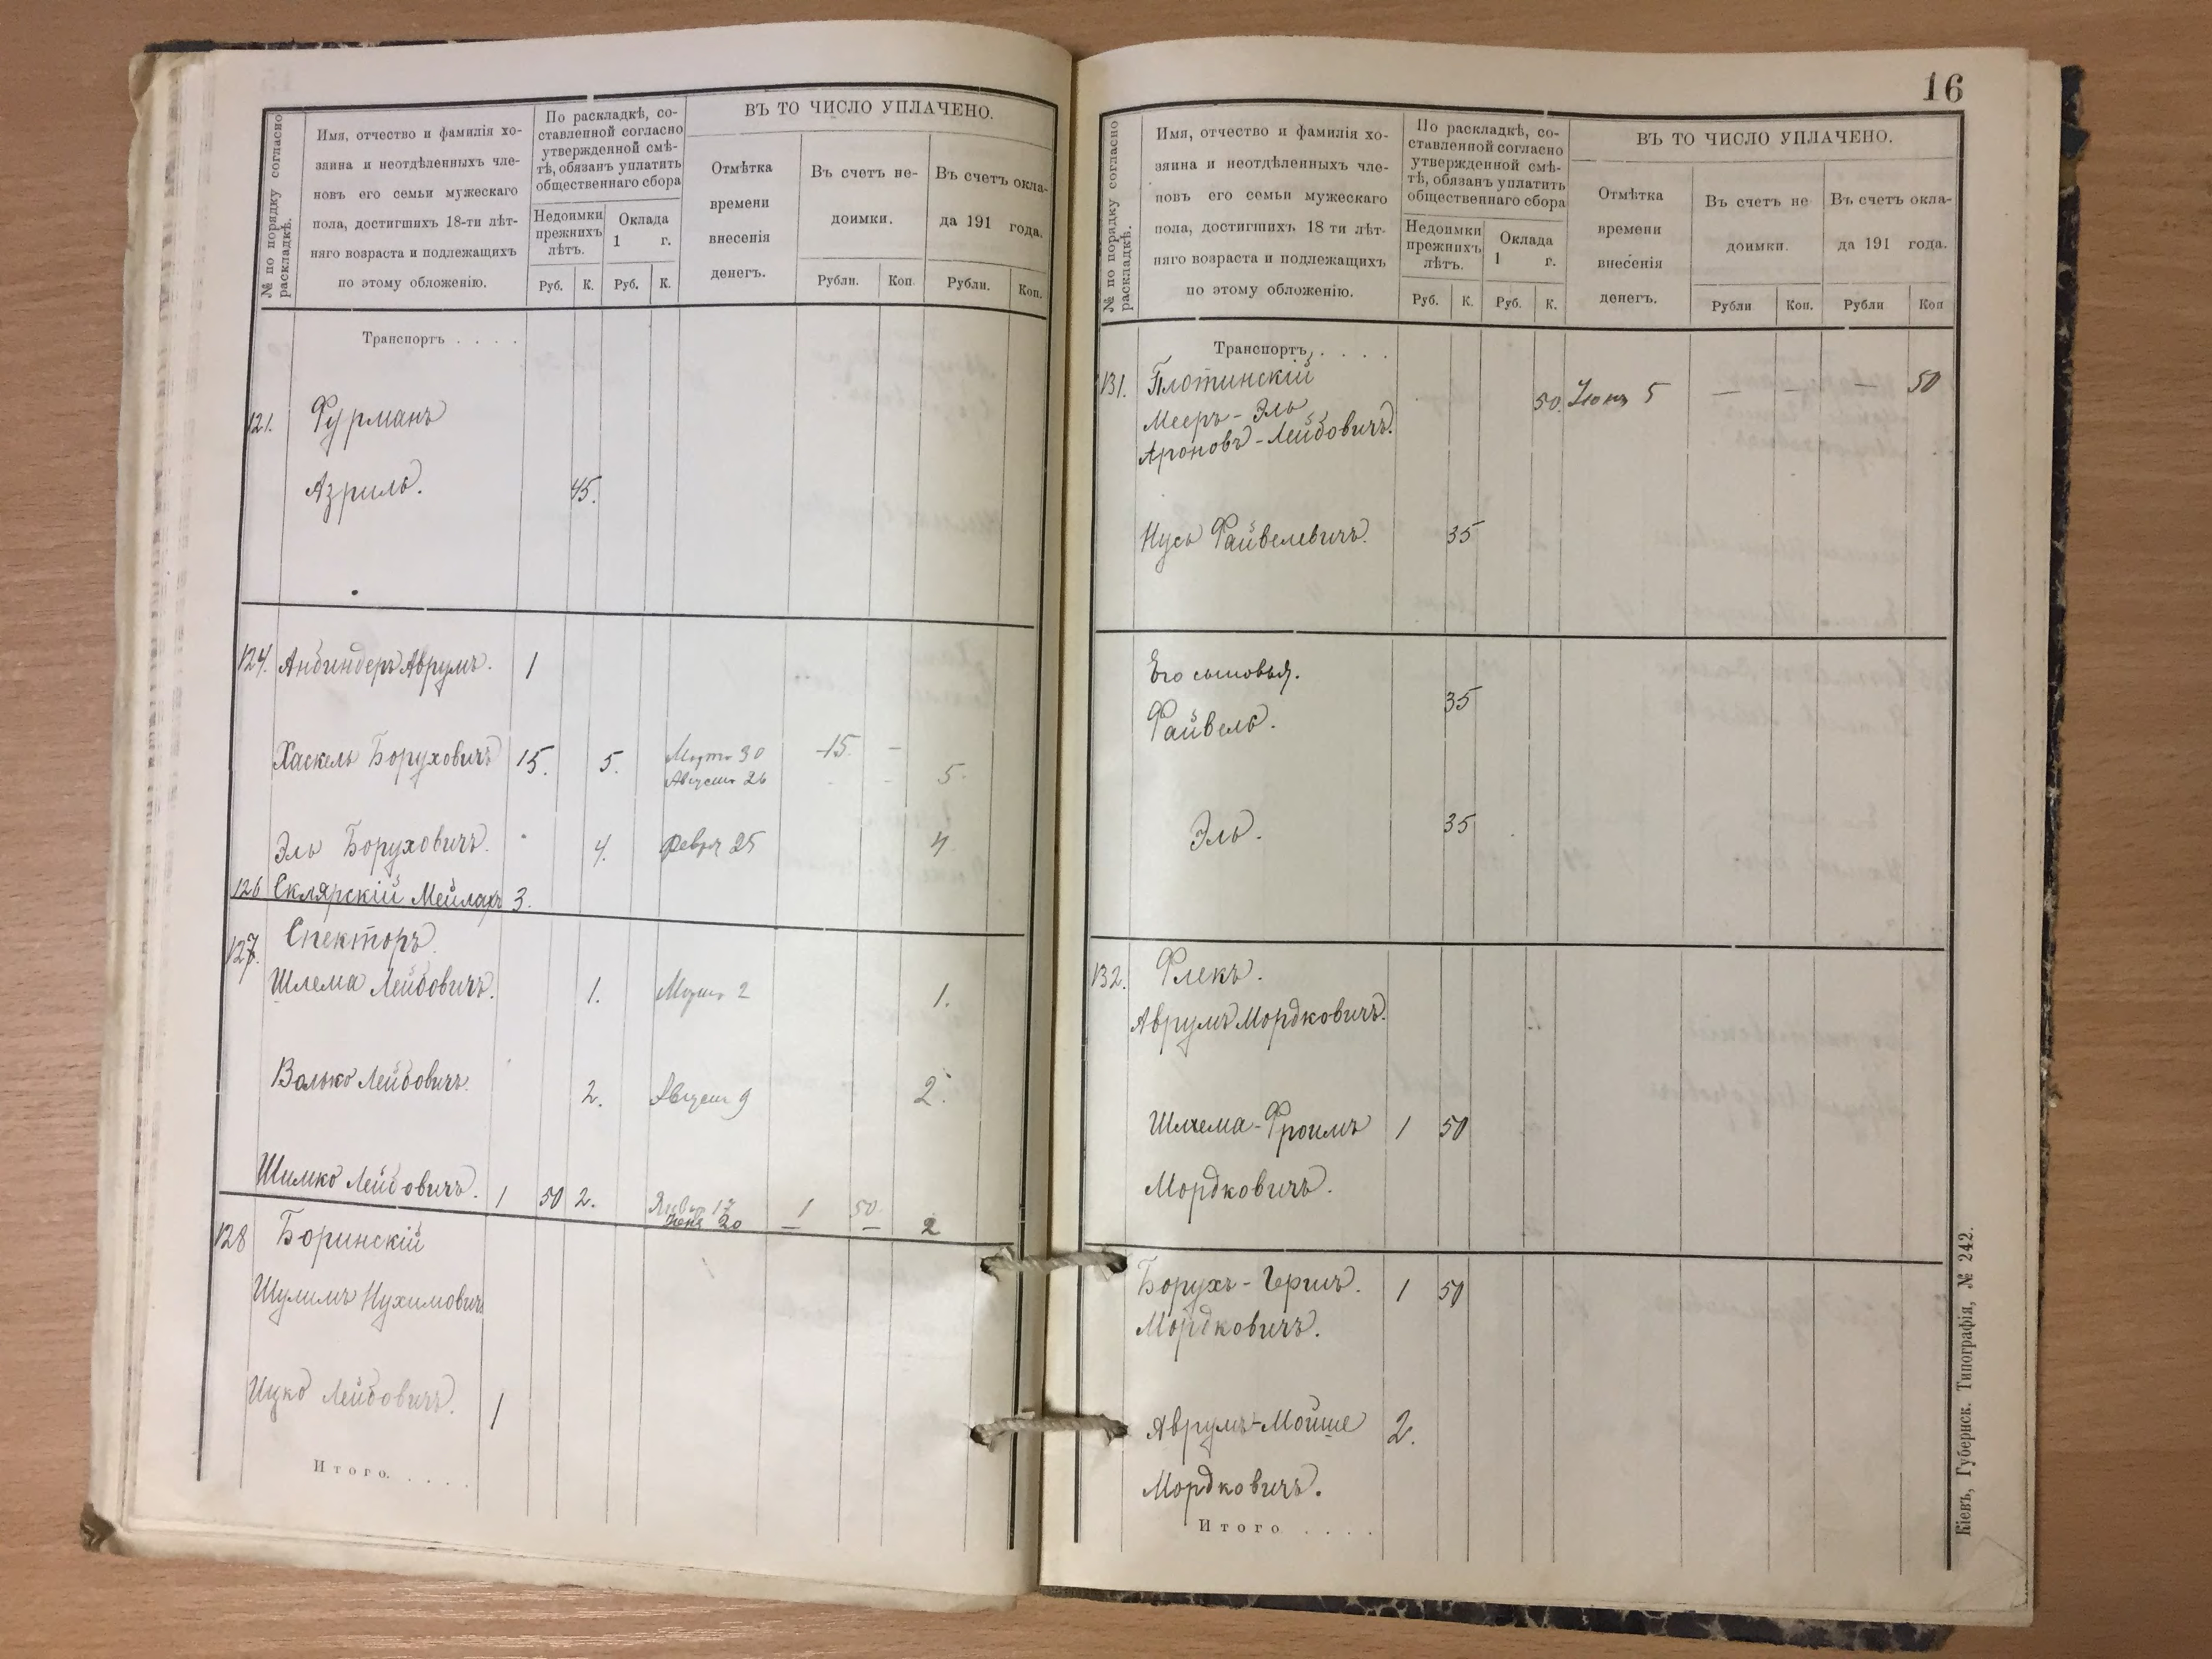 № по порядку согласно
раскладкѣ.
Имя, отчество и фамилія хо-
зяина и неотдѣленныхъ чле-
новъ его семьи мужескаго
пола, достигшихъ 18-ти лѣт-
няго возраста и подлежащихъ
по этому обложенію.
По раскладкѣ, со-
ставленной согласно
утвержденной смѣ-
тѣ, обязанъ уплатить
общественнаго сбора
Недоимки
прежнихъ
лѣтъ.
Оклада
1 г.
Руб. К. Руб. К.
ВЪ ТО ЧИСЛО УПЛАЧЕНО.
Отмѣтка
времени
внесенія
денегъ.
Въ счетъ не-
доимки.
Въ счетъ окла-
да 191 года.
Рубли. Коп. Рубли. Коп.
Транспортъ . . . .
121. Фурманъ
Азриль. 45.
124. Анбиндеръ Аврумъ. 1
Хаскель Боруховичъ 15. 5. Март 30 -15. -
Август 26 - - 5.
Эль Боруховичъ. 4. Февр 25 4
126 Склярскій Мейлахъ 3.
127. Спекторъ.
Шлема Лейбовичъ. 1. Март 2 1.
Волько Лейбовичъ. 2. Август 9 2.
Шимко Лейбовичъ. 1 50 2. Январ 17 1 50
Июня 20 — — 2
128 Боринскій
Шулимъ Нухимовичъ
Ицко Лейбовичъ. 1
Итого. . . . .
16
№ по порядку согласно
раскладкѣ.
Имя, отчество и фамилія хо-
зяина и неотдѣленныхъ чле-
новъ его семьи мужескаго
пола, достигшихъ 18 ти лѣт-
няго возраста и подлежащихъ
по этому обложенію.
По раскладкѣ, со-
ставленной согласно
утвержденной смѣ-
тѣ, обязанъ уплатить
общественнаго сбора
Недоимки
прежнихъ
лѣтъ.
Оклада
1 г.
Руб. К. Руб. К.
ВЪ ТО ЧИСЛО УПЛАЧЕНО.
Отмѣтка
времени
внесенія
денегъ.
Въ счетъ не
доимки.
Въ счетъ окла-
да 191 года.
Рубли Коп. Рубли Коп
Транспортъ . . . .
131. Плотинскій
Мееръ-Эль 50. 5 — — — 50
Ароновъ-Лейбовичъ.
Нусь Файвелевичъ. 35
Его сыновья.
Файвель. 35
Эль. 35
132. Флекъ.
Аврумъ Мордковичъ. 1.
Шлема-Фроимъ 1 50
Мордковичъ.
Борухъ-Гершъ. 1 50
Мордковичъ.
Аврумъ-Мойше 2.
Мордковичъ.
Итого . . . .
Кіевъ, Губернск. Типографія, № 242.